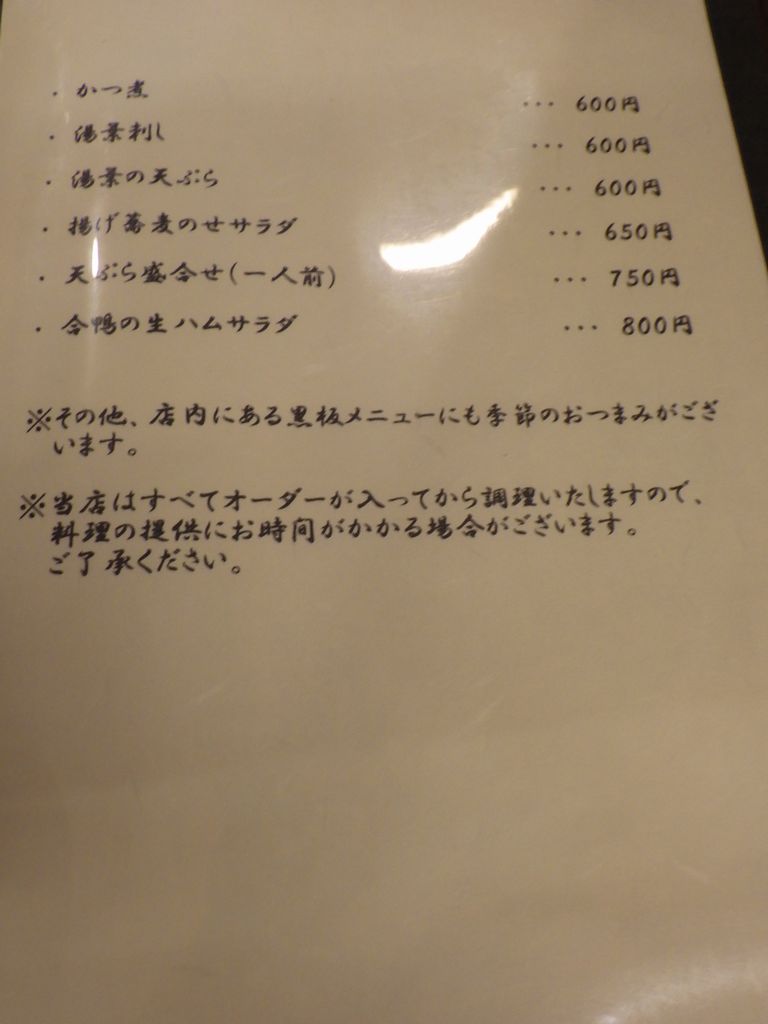 ・かつ煮 ・・・ 600円
・湯葉刺し ・・・ 600円
・湯葉の天ぷら ・・・ 600円
・揚げ蕎麦のせサラダ ・・・ 650円
・天ぷら盛合せ(一人前) ・・・ 750円
・合鴨の生ハムサラダ ・・・ 800円
※その他、店内にある黒板メニューにも季節のおつまみがござ
います。
※当店はすべてオーダーが入ってから調理いたしますので、
料理の提供にお時間がかかる場合がございます。
ご了承ください。